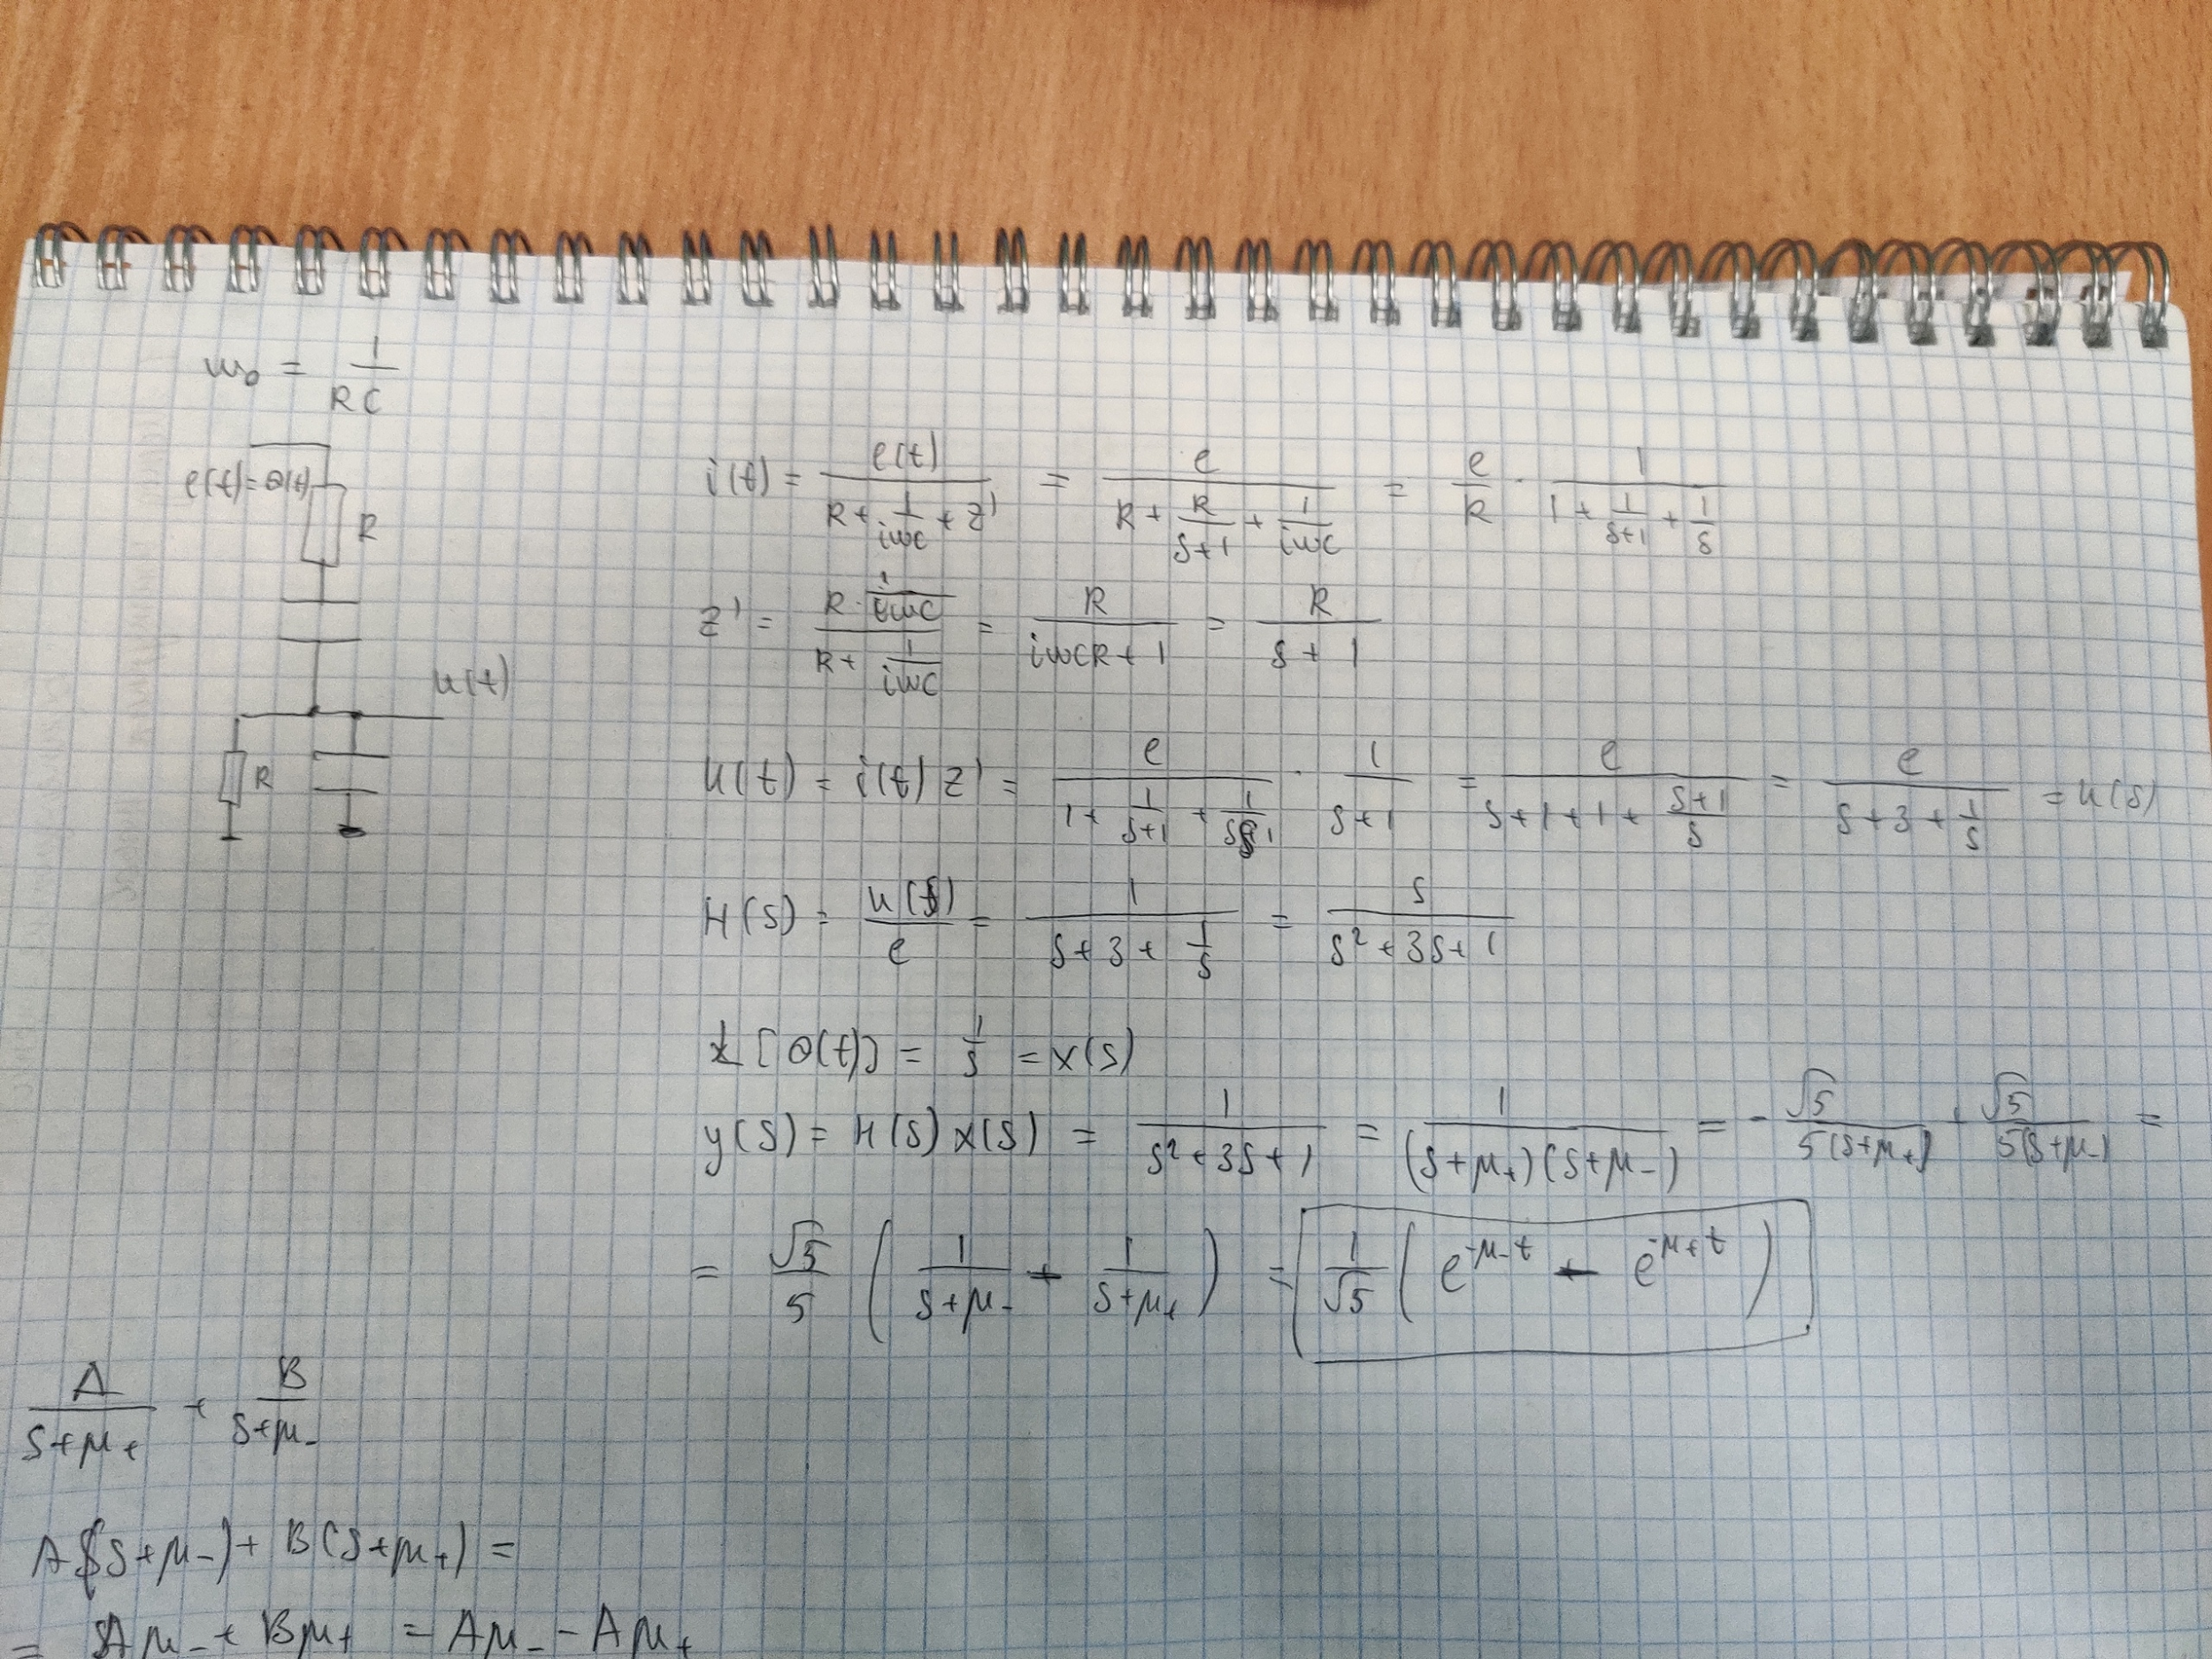 ω₀ = 1/(RC)
e(t)=θ(t)
R
u(t)
R
i(t) = e(t)/(R + 1/(iωc) + z') = e/(R + R/(s+1) + 1/(iωc)) = e/R · 1/(1 + 1/(s+1) + 1/s)
z' = (R · 1/(iωc))/(R + 1/(iωc)) = R/(iωcR + 1) = R/(s + 1)
u(t) = i(t) z' = e/(1 + 1/(s+1) + 1/s) · 1/(s+1) = e/(s+1+1+ (s+1)/s) = e/(s+3+ 1/s) = u(s)
H(s) = u(s)/e = 1/(s+3+ 1/s) = s/(s²+3s+1)
L[θ(t)] = 1/s = x(s)
y(s) = H(s) x(s) = 1/(s²+3s+1) = 1/((s+μ₊)(s+μ₋)) = - √5/(5(s+μ₊)) + √5/(5(s+μ₋)) =
= √5/5 ( 1/(s+μ₋) - 1/(s+μ₊) ) = 1/√5 ( e^(-μ₋t) - e^(-μ₊t) )
A/(s+μ₊) + B/(s+μ₋)
A(s+μ₋)+ B(s+μ₊) =
= Aμ₋ + Bμ₊ = Aμ₋ - Aμ₊